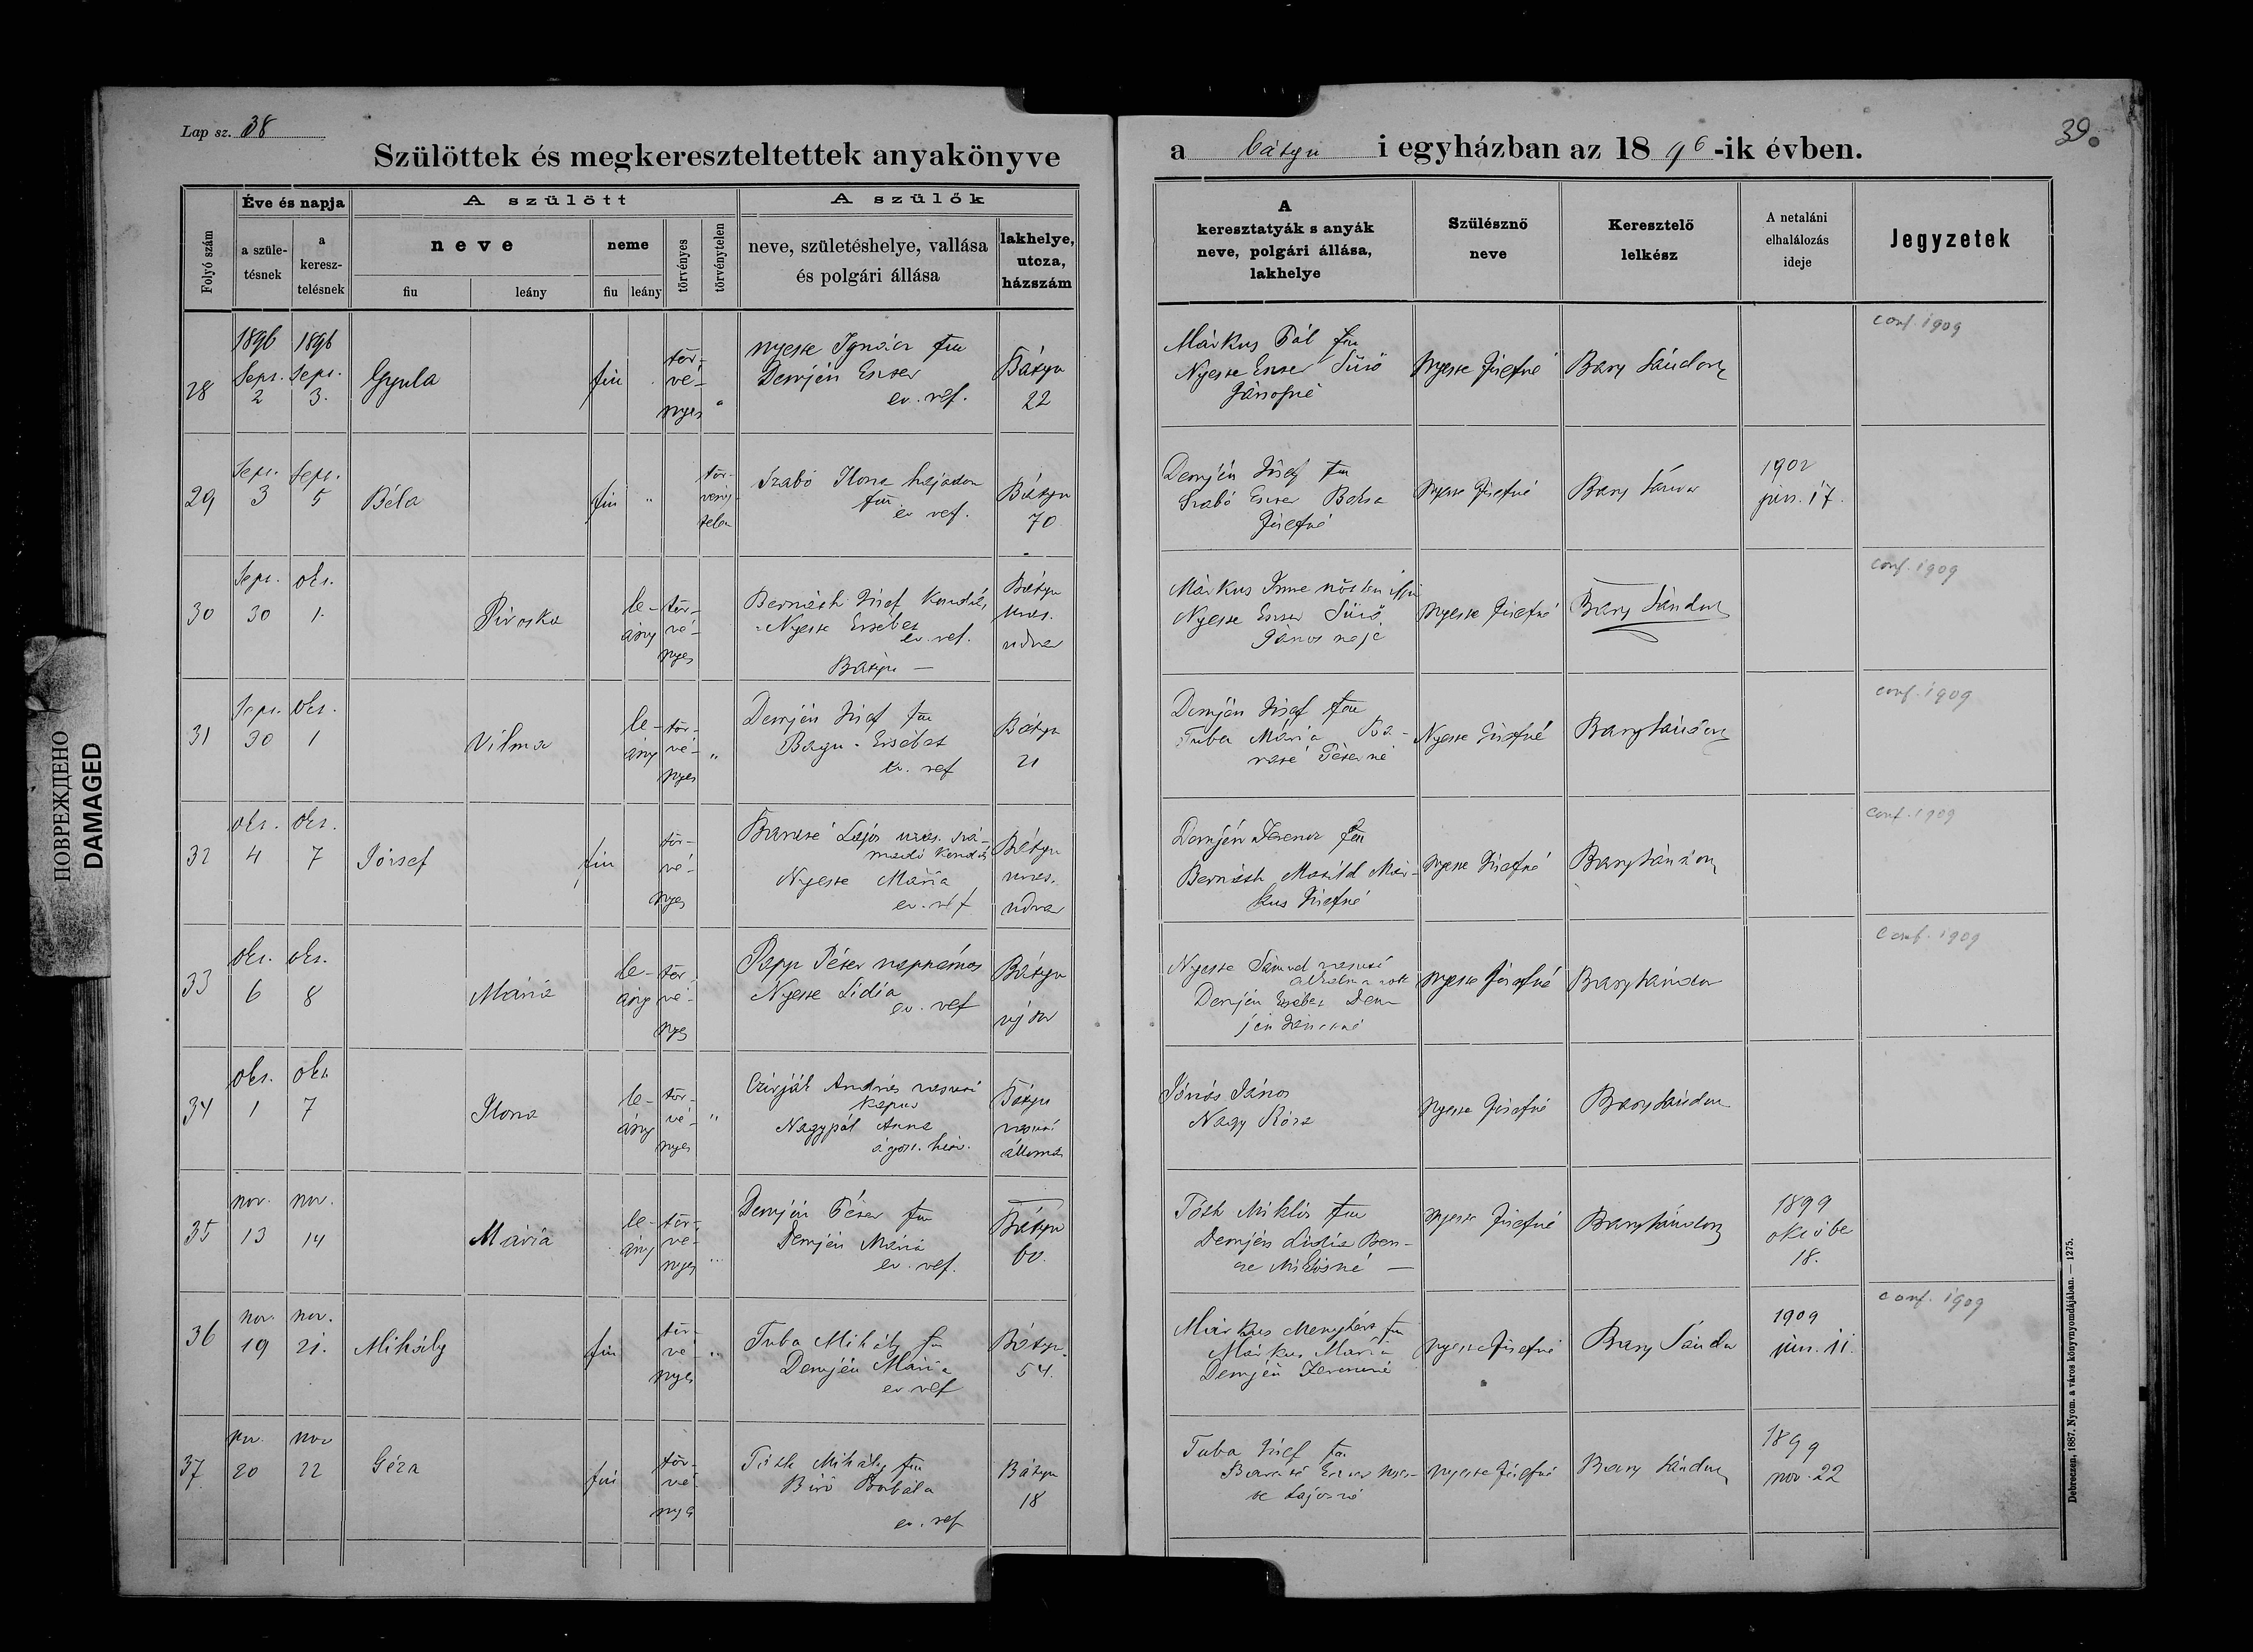 Lap sz. 38
Szülöttek és megkereszteltettek anyakönyve
Folyó szám
Éve és napja
a születésnek
a keresztelésnek
A szülött
neve
fiu
leány
neme
fiu
leány
törvényes
törvénytelen
A szülők
neve, születéshelye, vallása
és polgári állása
lakhelye,
utcza,
házszám
28
1896
Sept.
2
1896
Sept.
3.
Gyula
fiu
tör-
vé-
nyes
Nyeste Ignácz fm
Demjén Eszter
ev. ref.
Bátyu
22
29
Sept.
3
Sept.
5
Béla
fiu
Szabó Ilona hajadon
fm
ev ref.
Bátyu
70
30
Sept.
30
okt.
1.
Piroska
le-
ány
tör-
vé-
nyes
Bernáth József kondás
Nyeste Erzsébet
ev. ref.
Bátyu —
Bátyu
uras.
udvar
31
Sept.
30
okt.
1
Vilma
le-
ány
tör-
vé-
nyes
Demjén József fm
Erzsébet
ev. ref
Bátyu
21
32
okt.
4
okt.
7
József
fiu
tör-
vé-
nyes
Lajos uras.
Nyeste Mária
ev. ref
Bátyu
uras.
udvar
33
okt.
6
okt.
8
Mária
le-
ány
tör
vé-
nyes
Papp Péter napszámos
Nyeste Lidia
ev. ref
Bátyu
34
okt.
1
okt
7
Ilona
le-
ány
tör-
vé-
nyes
Czirják András vasuti
Nagypál Anna
ágost. hitv.
Bátyu
vasuti
állomás
35
nov.
13
nov.
14
Mária
le-
ány
tör-
vé-
nyes
Demjén Péter fm
Demjén Mária
ev. ref.
Bátyu
60.
36
nov.
19
nov.
21.
Mihály
fiu
tör-
vé-
nyes
Tuba Mihály fm
Demjén Mária
ev ref
Bátyu.
54.
37
nov.
20
nov
22
Géza
fiu
tör-
vé-
nyes
Tóth Mihály fm
Biró Borbála
ev. ref
Bátyu
18
a bátyu i egyházban az 1896-ik évben.
39.
A
keresztatyák s anyák
neve, polgári állása,
lakhelye
Szülésznő
neve
Keresztelő
lelkész
A netaláni
elhalálozás
ideje
Jegyzetek
Márkus Pál fm
Nyeste Eszter Sütő
Jánosné
Nyeste Józsefné
Bary Sándor
conf. 1909
Demjén József fm
Szabó Eszter
Józsefné
Nyeste Józsefné
Bary Sándor
1902
jún. 17.
Márkus Imre nőtlen ifju
Nyeste Eszter Sütő
János neje
Nyeste Józsefné
Bary Sándor
conf. 1909
Demjén József fm
Tuba Mária
Péterné
Nyeste Józsefné
Bary Sándor
conf. 1909
Demjén Ferencz fm
Bernáth Matild Már-
kus Józsefné
Nyeste Józsefné
Bary Sándor
conf. 1909
Nyeste Sámuel vasuti
Demjén Erzsébet Dem
jén
Nyeste Józsefné
Bary Sándor
conf. 1909
Jónás János
Nagy Róza
Nyeste Józsefné
Bary Sándor
Tóth Miklós fm
Demjén Lidia Ben-
ze Miklósné —
Nyeste Józsefné
Bary Sándor
1899
október
18.
Márkus Menyhért fm
Márkus Mária
Demjén Ferenczné
Nyeste Józsefné
Bary Sándor
1909
jún. 11.
conf. 1909
Tuba József fm
Eszter Nyes-
te Lajosné
Nyeste Józsefné
Bary Sándor
1899
nov. 22
Debreczen. 1887. Nyom. a város könyvnyomdájában. — 1275.
ПОВРЕЖДЕНО
DAMAGED